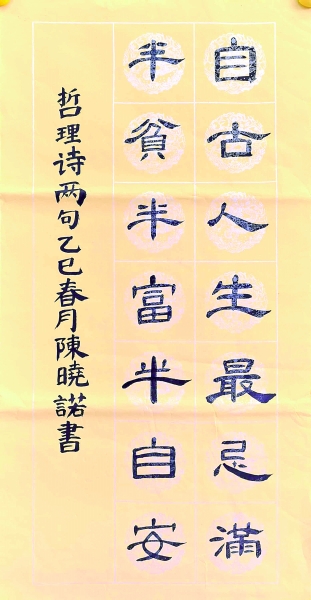 自古人生最忌滿
半貧半富半自安
哲理诗两句乙巳春月陳曉諾書